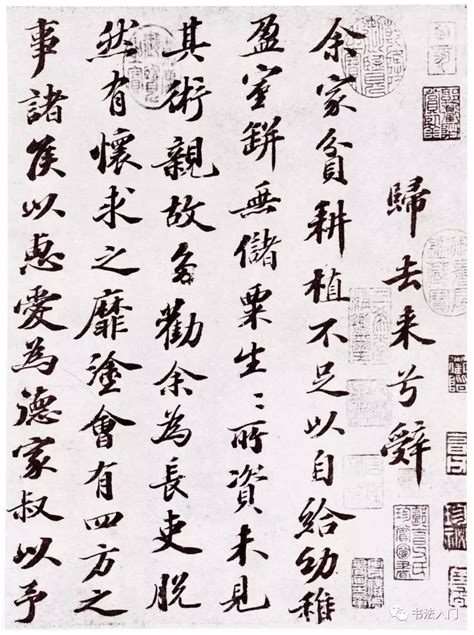 歸去来兮辭
余家貧耕植不足以自給幼稚
盈室缾無儲粟生〻所資未見
其術親故多勸余為長吏脱
然有懷求之靡塗會有四方之
事諸侯以惠愛為德家叔以予
书法入门